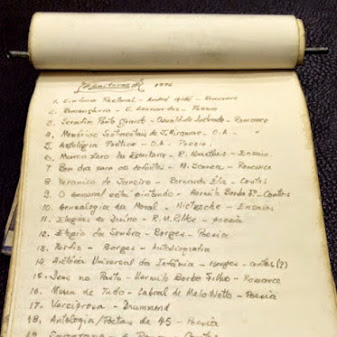 1996
1. Sinfonia Pastoral - André Gide - Romance
2. - Poesia
3. Serafim Ponte Grande - Oswald de Andrade - Romance
4. Memórias Sentimentais de J. Miramar - O.A. - "
5. Antologia Poética - O.A. - Poesia
6. Marco Zero da Escritura - R. Barthes - Ensaio
7. Bom dia para os defuntos - M. Scorza - Romance
8. Veranico de Janeiro - Bernardo Élis - Contos
9. O General está pintando - Hermilo Borba Fº - Contos
10. Genealogia da Moral - Nietzsche - Ensaios
11. Elegias de Duíno - R.M. Rilke - poesia
12. Elogio da Sombra - Borges - Poesia
13. Perfis - Borges - Autobiografia
14. História Universal da Infâmia - Borges - contos (?)
15. Deus no Pasto - Hermilo Borba Filho - Romance
16. Museu de Tudo - Cabral de Melo Neto - Poesia
17. Versiprosa - Drummond
18. Antologia/Poetas de 45 - Poesia
19. - Contos